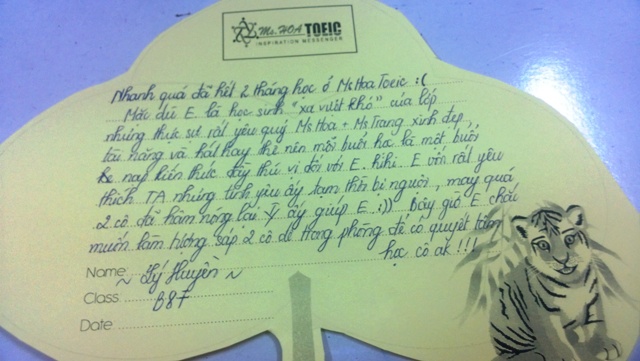 Ms. HOA TOEIC
INSPIRATION MESSENGER
Nhanh quá đã hết 2 tháng học ở Ms Hoa Toeic :(
Mặc dù E là học sinh "xa vượt khó" của lớp
nhưng thực sự rất yêu quý Ms Hoa + Ms Trang xinh đẹp,
tài năng và hát hay thế nên mỗi buổi học là một buổi
nạp kiến thức đầy thú vị đối với E. hihi. E vốn rất yêu
thích TA nhưng tình yêu ấy tạm thời bị nguội, may quá
2 cô đã hâm nóng lại ty ấy giúp E :)) Bây giờ E chắc
muốn làm tượng sáp 2 cô để trong phòng để có quyết tâm
học cô ak !!!
Name ~ Lý Huyền ~
Class B87
Date